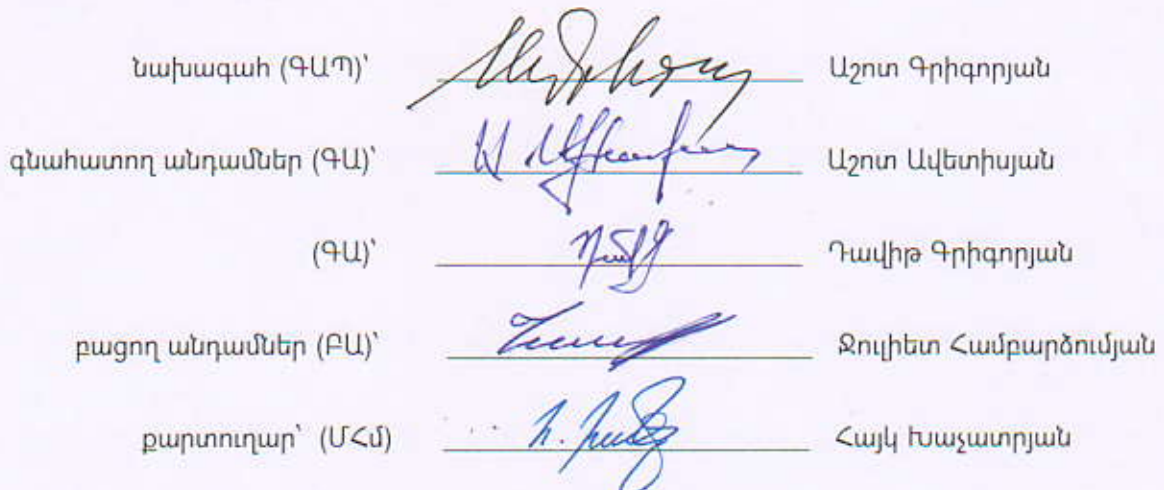 նախագահ (ԳԱՊ)՝ Աշոտ Գրիգորյան
գնահատող անդամներ (ԳԱ)՝ Աշոտ Ավետիսյան
(ԳԱ)՝ Դավիթ Գրիգորյան
բացող անդամներ (ԲԱ)՝ Ջուլիետ Համբարձումյան
քարտուղար՝ (ՄՀմ) Հայկ Խաչատրյան